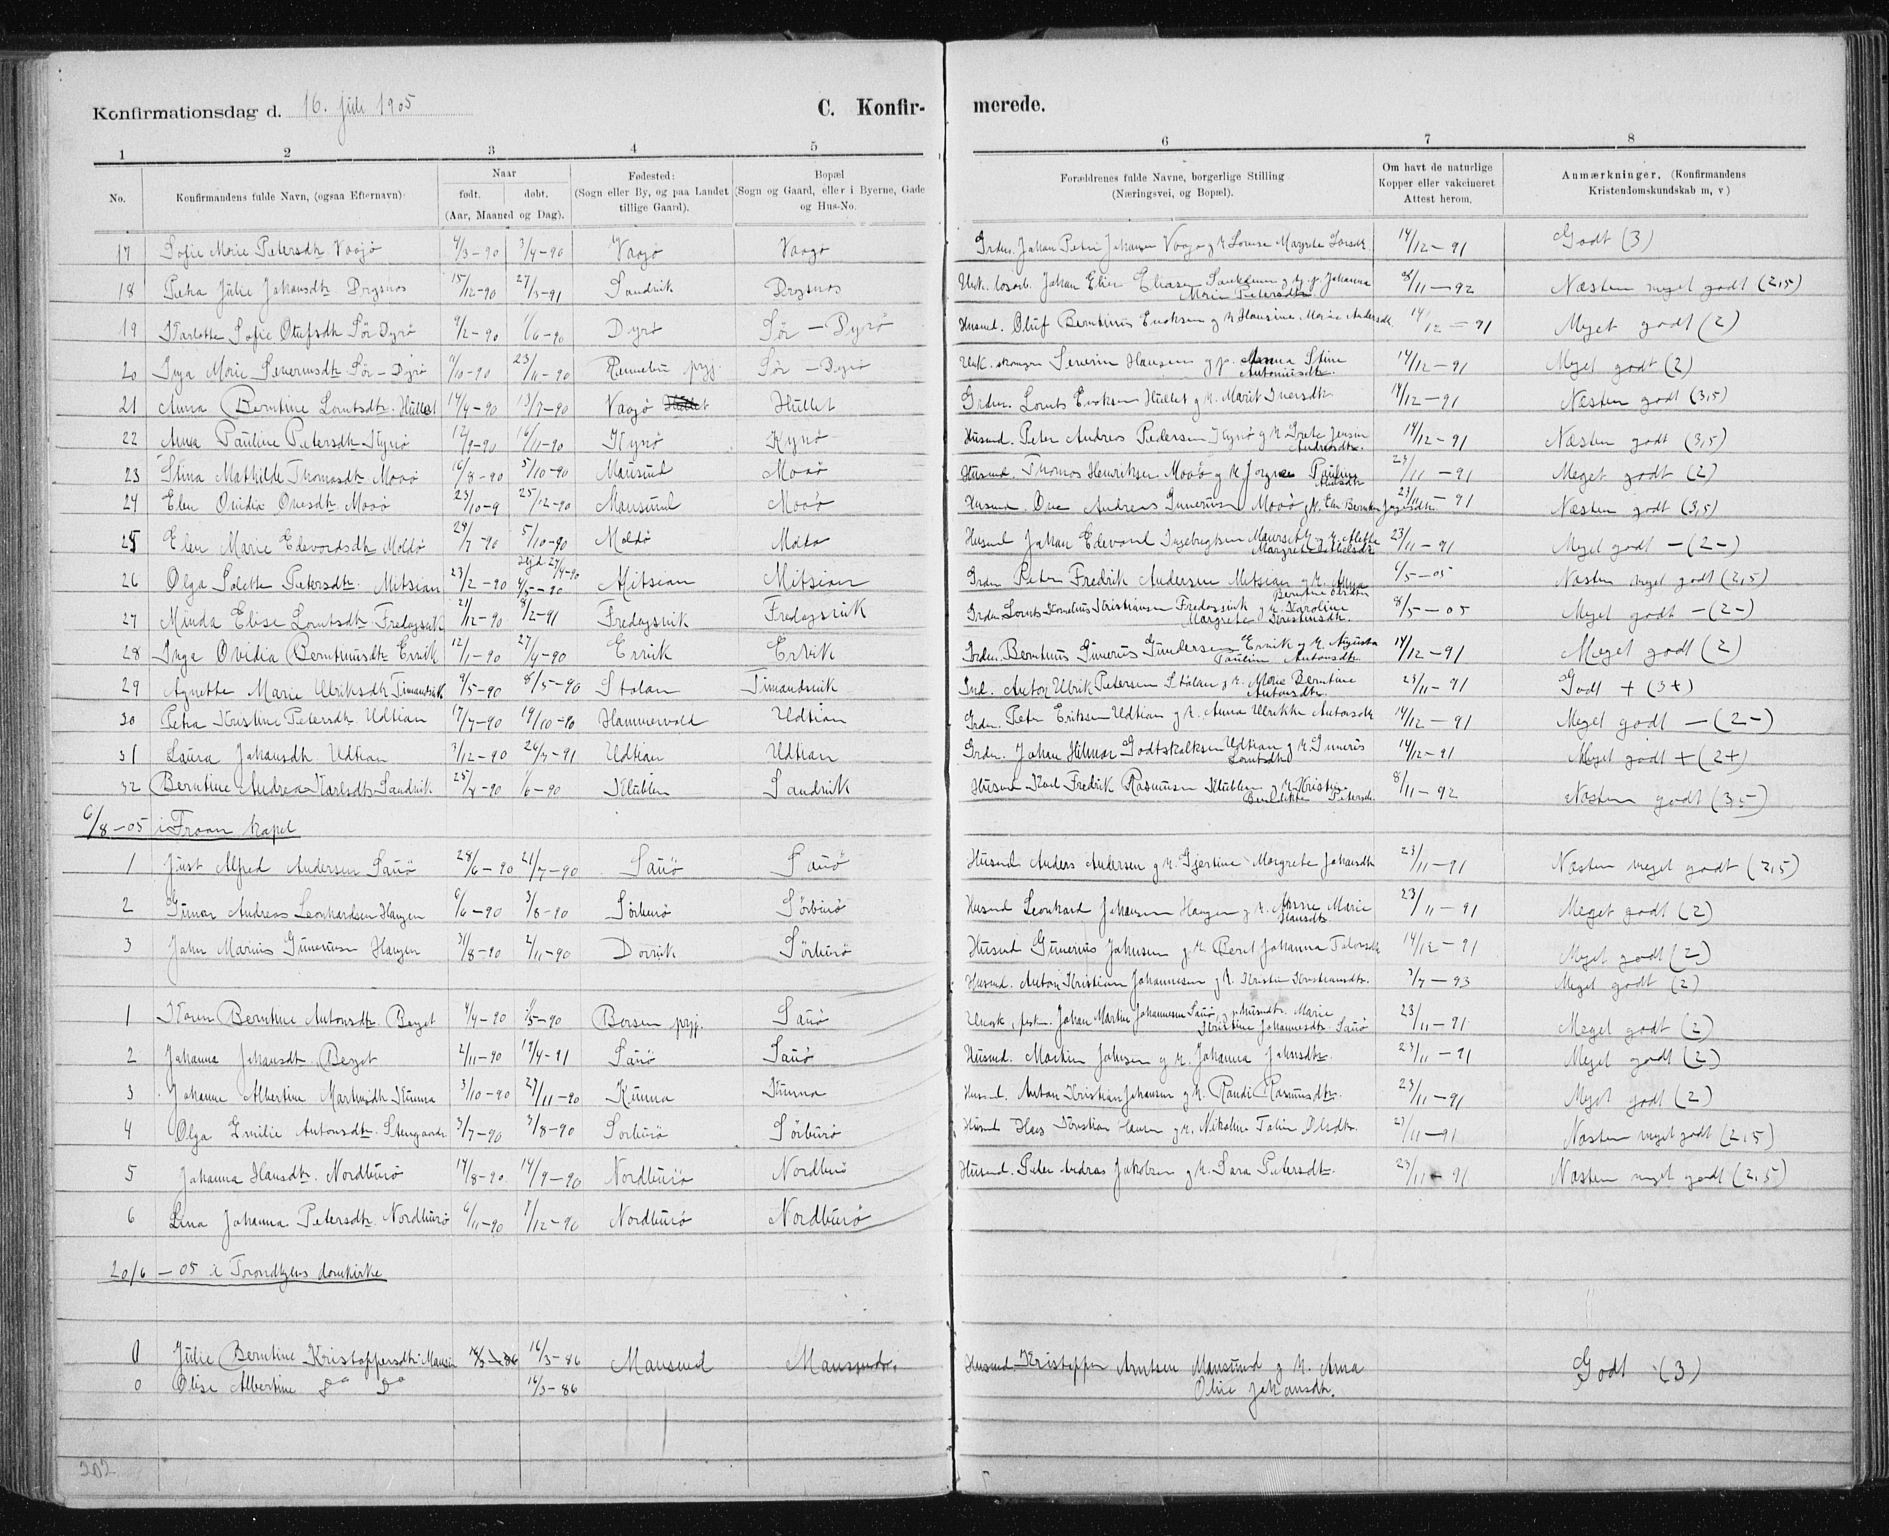 Konfirmationsdag d. 16. Juli 1905 C. Konfir- merede.
1 2 3 4 5 6 7 8
No. Konfirmandens fulde Navn, (ogsaa Efternavn) Naar født. døbt. (Aar, Maaned og Dag). Fødested: (Sogn eller By, og paa Landet tillige Gaard). Bopæl (Sogn og Gaard, eller i Byerne, Gade og Hus-No. Forældrenes fulde Navne, borgerlige Stilling (Næringsvei, og Bopæl). Om havt de naturlige Kopper eller vakcineret Attest herom. Anmærkninger. (Konfirmandens Kristendomskundskab m, v)
17 Sofie Marie Petersdtr Vaagø 4/3-90 3/4-90 Vaagø Vaagø Grdm. Johan Petri Johansen Vaagø og H. Lovise Margrete 14/12-91 Godt (3)
18 Petra Julie Johansdtr Drysnes 15/12-90 27/3-91 Sandvik Drysnes Johan Elier Eliasen og Johanna Marie Petersdtr /11-92 Næsten meget godt (2,5)
19 Karlotte Sofie Olufsdtr Sør Dyrø 9/2-90 /6-90 Dyrø Sør-Dyrø Husmd. Oluf Berntinus Enoksen og H. Hansine Marie Andersdtr 14/12-91 Meget godt (2)
20 Inga Marie Severinsdtr Sør-Dyrø 9/10-90 23/11-90 Rennebu prgj. Sør-Dyrø Severin Hansen og Anna Stine Antoniusdtr. 14/12-91 Meget godt (2)
21 Anna Berntine Lorntsdtr. Hullet 14/4-90 13/7-90 Vaagø Hullet Grdm. Lornts Enoksen Hullet og H. Marit Iversdtr 14/12-91 Næsten godt (3,5)
22 Anna Pauline Petersdtr Kynø 12/9-90 16/11-90 Kynø Kynø Husmd. Peter Andreas Pedersen Kynø og H. Grete Jensine Andreasdtr. 14/12-91 Næsten godt (3,5)
23 Stina Mathilde Thomasdtr Moaø 16/8-90 5/10-90 Mausund Moaø Husmd. Thomas Henriksen Moaø og H. Jørgine Pauline 23/11-91 Meget godt (2)
24 Elen Ovidia Ovesdtr Moaø 23/10-9 25/12-90 Mausund Moaø Husmd. Ove Andreas Gunerius Moaø og H. Elen Berntine Jørgensdtr. 23/11-91 Næsten godt (3,5)
25 Elen Marie Edevardsdtr Moldø 29/7-90 5/10-90 Moldø Moldø Husmd Johan Edevard Ingebrigtsen og H. Alette Margrete 23/11-91 Meget godt -(2-)
26 Olga Solette Petersdtr. Mitsian 23/2-90 4/5-90 Mitsian Mitsian Grdm Peter Fredrik Andersen Mitsian og H. Anna Berntine 6/5-05 Næsten meget godt (2,5)
27 Minda Elise Lorntsdtr Fredagsvik 21/12-90 8/2-91 Fredagsvik Fredagsvik Grdm Lornts Kornelius Kristiansen Fredagsvik og H. Karoline Margrete Kristensdtr. 8/5-05 Meget godt -(2-)
28 Inga Ovidia Berntinusdtr Ervik 12/1-90 27/4-90 Ervik Ervik Grdm. Berntinus Gunerius Gundersen Ervik og H. Augusta Pauline Antonsdtr. 14/12-91 Meget godt (2)
29 Agnette Marie Ulriksdtr Timandsvik 9/5-90 8/5-90 Stolan Timandsvik Ind. Anton Ulrik Petersen Stølan og H. Marie Berntine Antonsdtr. 23/11-91 Godt + (3+)
30 Petra Kristine Petersdtr Udtian 17/7-90 19/10-90 Hammervold Udtian Grdm. Peter Eriksen Udtian og H. Anna Ulrikke Antonsdtr 14/12-91 Meget godt -(2-)
31 Laura Johansdtr Udtian 3/12-90 26/3-91 Udtian Udtian Grdm. Johan Hilmar Godtskalksen Udtian og H. Gunerius Lorntsdtr 14/12-91 Meget godt + (2+)
32 Berntine Andrea Karlsdtr Sandvik 25/4-90 /6-90 Klubben Sandvik Husmd Karl Fredrik Rasmusen Klubben og H. Kristine Benedikte Petersdtr. 8/11-92 Næsten godt (3,5)
6/8-05 i Froan kapel
1 Just Alfred Andersen Sauø 28/6-90 21/7-90 Sauø Sauø Husmd Anders Andersen og H. Gjertine Margrete Johansdtr 23/11-91 Næsten meget godt (2,5)
2 Gunar Andreas Leonhardsen Haugen 6/6-90 3/8-90 Sørburø Sørburø Husmd Leonhard Johansen Haugen og H. Anne Marie Hansdtr. 23/11-91 Meget godt (2)
3 John Marius Guneriusen Haugen 31/8-90 2/11-90 Dorvik Sørburø Husmd Gunerius Johnsen og H. Beret Johanna 14/12-91 Meget godt (2)
Husmd. Anton Kristian Johannesen og H. Kristine Kristiansdtr. 3/7-93 Meget godt (2)
1 Karen Berntine Antonsdtr. Berget 4/4-90 /5-90 Borsen prgj. Sauø Johan Martin Johannesen Sauø og Marie Kristine Johannesdtr. Sauø 23/11-91 Meget godt (2)
2 Johanna Johansdtr. Berget 2/11-90 19/4-91 Sauø Sauø Husmd. Martin Johnsen og H. Johanna Johnsdtr. 23/11-91 Meget godt (2)
3 Johanne Albertine Martinsdtr Kunna 3/10-90 27/11-90 Kunna Kunna Husmd. Anton Kristian Johansen og H. Randi Rasmusdtr. 23/11-91 Meget godt (2)
4 Olga Emilie Antonsdtr. Stengaard. 3/7-90 3/8-90 Sørburø Sørburø Husmd Hans Kristian Hansen og H. Nikoline 23/11-91 Næsten meget godt (2,5)
5 Johanna Hansdtr. Nordburø 17/8-90. 14/9-90 Nordburø Nordburø Husmd. Peter Andreas Jakobsen og H. Sara Petersdtr. 23/11-91 Næsten meget godt (2,5)
6 Lina Johanna Petersdtr. Nordburø 6/11-90 7/12-90 Nordburø Nordburø
20/6-05 i Trondhjems domkirke
0 Julie Berntine Kristoffersdtr. Mausun 16/3-86 Mausund Mausund Husmd Kristoffer Arntsen Mausund og H. Anna Oline Johansdtr. Godt (3)
0 Elise Albertine do do 16/3-86
202